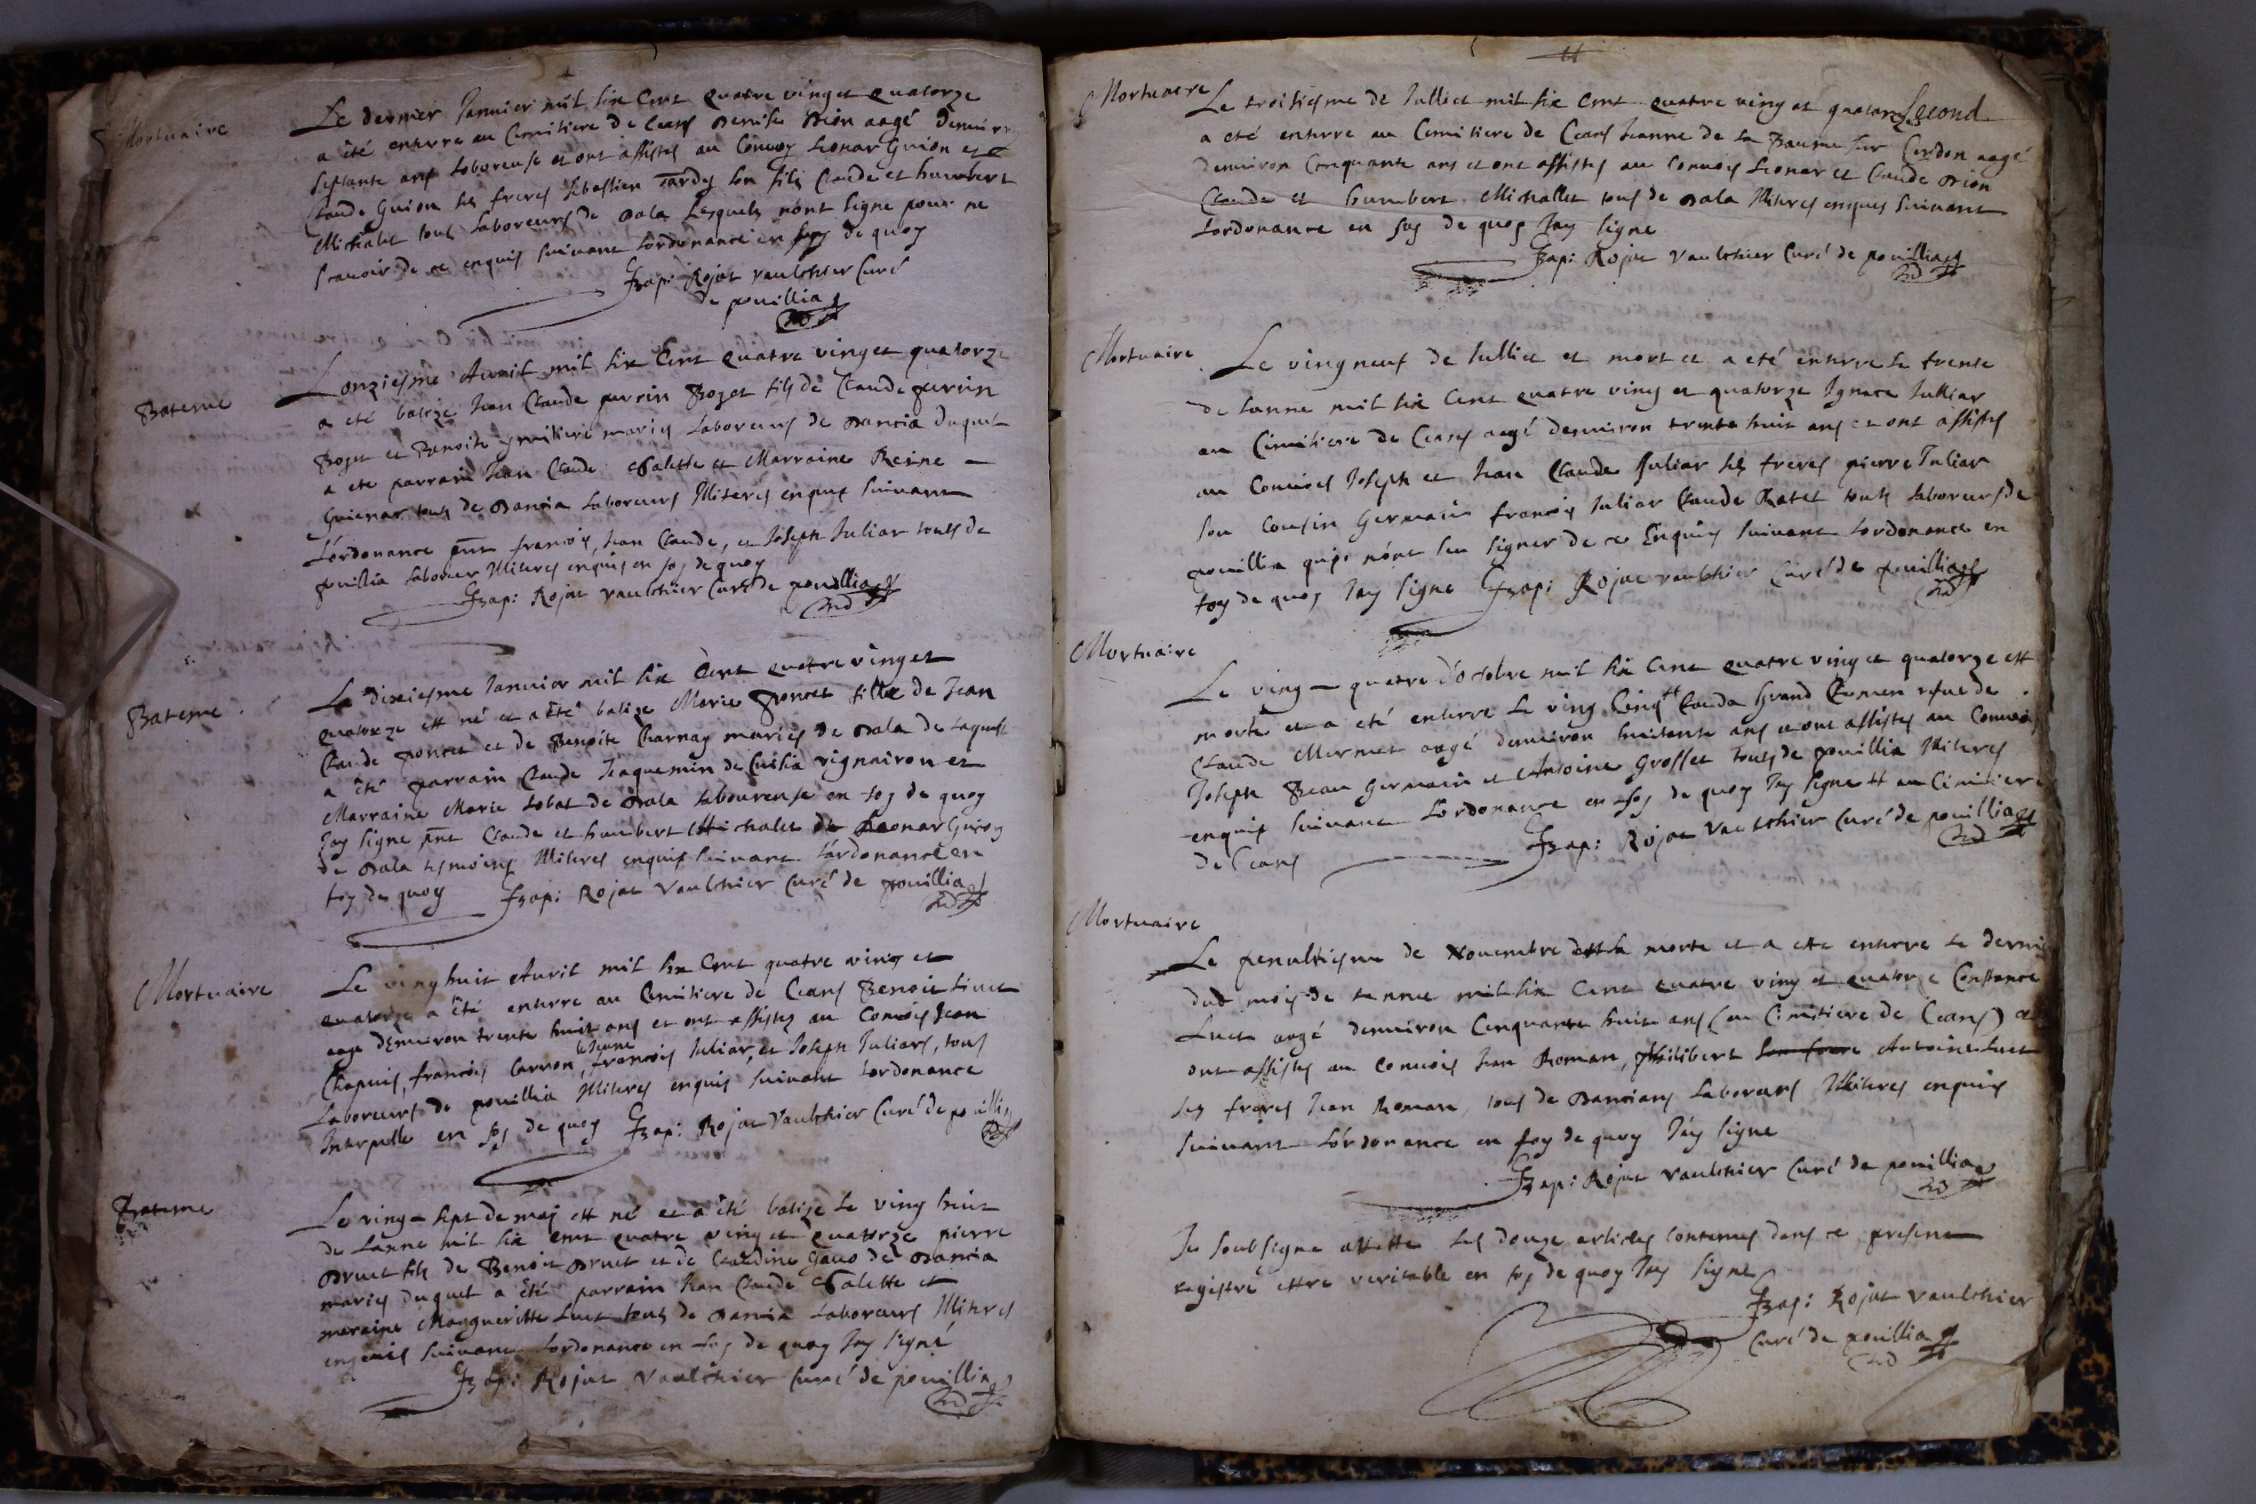 Mortuaire
Le dernier Januier mil six cent quatre vinget quatorze
a été enterre au Cemitiere de Ceans Denise Dion aagé denuiron
septante ans laboreuse et ont assistes au Conuoy Lionar Guion et
Claude Guion ses freres sebastien Tardy son fils Claude et humbert
Michalet tous laboreurs de Dala Lesquels n'ont signe pour ne
scauoir de ce enquis suiuant lordonance en foy de quoy
Bap: Rojat Vaulchier Curé
de pouillia
Bateme
Lonziesme Auril mil six Cent quatre vinget quatorze
a eté batize Jean Claude perrin Bozet fils de Claude perrin
Bozet et Benoite maries Laboreurs de Dancia duquel
a ete parrain Jean Claude Calette et Marraine Reine
Guienar touts de Dancia Laboreurs Miteres enquis suiuant
L'ordonance pnt francois, Jean Claude, et Joseph Juliar touts de
pouillia laboreur Miteres enquis en foy de quoy
Bap: Rojat Vaulchier Curé de pouillia
Bateme
Le dixiesme Januier mil six Cent quatre vinget
quatorze est né et a été batize Marie poncet fille de Jean
Claude poncet et de Benoite Charnay maries de Dala de laquelle
a été parrain Claude Jaquemin de Cuisia vigneron et
Marraine Marie Lobat de Dala laboureuse en foy de quoy
Jay signe pnt Claude et humbert Michalet de Leonar Guion
de Dala tesmoins Miteres enquis suiuant L'ordonance en
foy de quoy Bap: Rojat Vaulchier Curé de pouillia
Mortuaire
Le ving huit Auril mil six Cent quatre ving et
quatorze a été enterre au Cemitiere de Ceans Benoit Liuet
aage denuiron trente huit ans et ont assistez au Conuois Jean
le Jeune
Chapuis, francois Carron, francois Juliar, et Joseph Juliars, tous
Laboreurs de pouillia Miteres enquis suiuant lordonance
Interpelle en foy de quoy Bap: Rojat Vaulchier Curé de pouillia
Bateme
Le ving sept de may est né et a été batize le ving huit
de Lanne mil six cent quatre ving et quatorze pierre
Druet fils de Benoit Druet et de Claudine de Dancia
maries duquel a été parrain Jean Claude Calette et
maraine Margueritte Luct touts de Dancia Laboreurs Miteres
enquis suiuant Lordonance en foy de quoy Jay signé
Bap: Rojat Vaulchier Curé de pouillia
Mortuaere
Le troisiesme de Julliet mil six cent quatre ving et quatorze Second
a eté enterre au Cemitiere de Ceans Jeanne de La Baume sur Cerdon aagé
denuiron Cinquante ans et ont assistes au conuois Leonar et Claude Dion
Claude et humbert Michallet tous de Dala Miteres enquis suiuant
Lordonance en foy de quoy Jay signe
Bap: Rojat Vaulchier Curé de pouillia
Mortuaire
Le vingneuf de Julliet est mort et a eté enterre le trente
de Lanne mil six Cent quatre ving et quatorze Ignace Julliar
au Cimitiere de Ceans aagé denuiron trente huit ans et ont assistes
au Conuois Joseph et Jean Claude Juliar ses freres pierre Juliar
son Cousin Germain francois Juliar Claude Ratet touts laboreurs de
pouillia quil n'ont seu signer de ce Enquis suiuant Lordonance en
foy de quoy Jay signe Bap: Rojat Vaulchier Curé de pouillia
Mortuaire
Le ving quatre d'octobre mil six cent quatre ving et quatorze est
morte et a eté enterre le ving Cinq Clauda Grand Clemen refue de
Claude Mermet aagé denuiron huictante ans et ont assistes au Conuois
Joseph Beau Germain et Antoine Grosset touts de pouillia Miteres
enquis suiuant Lordonance en foy de quoy Jay signe au Cimitiere
de Ceans Bap: Rojat Vaulchier Curé de pouillia
Mortuaire
Le penultiesme de Nouembre est morte et a este enterre le dernie
dud mois de Lanne mil six Cent quatre ving et quatorze Constance
Luct aagé denuiron Cinquante huit ans (au Cimitiere de Ceans) et
ont assistes au conuois Jean Roman, philibert Antoine Luct
ses freres Jean Roman, tous de Dancians Laborurs Miteres enquis
suiuant L'ordonance en foy de quoy J'ay signe
Bap: Rojat Vaulchier Curé de pouillia
Je soubsigne atteste Les douze articles contenus dans ce present
registre estre veritable en foy de quoy Jay signe
Bap: Rojat Vaulchier
Curé de pouillia